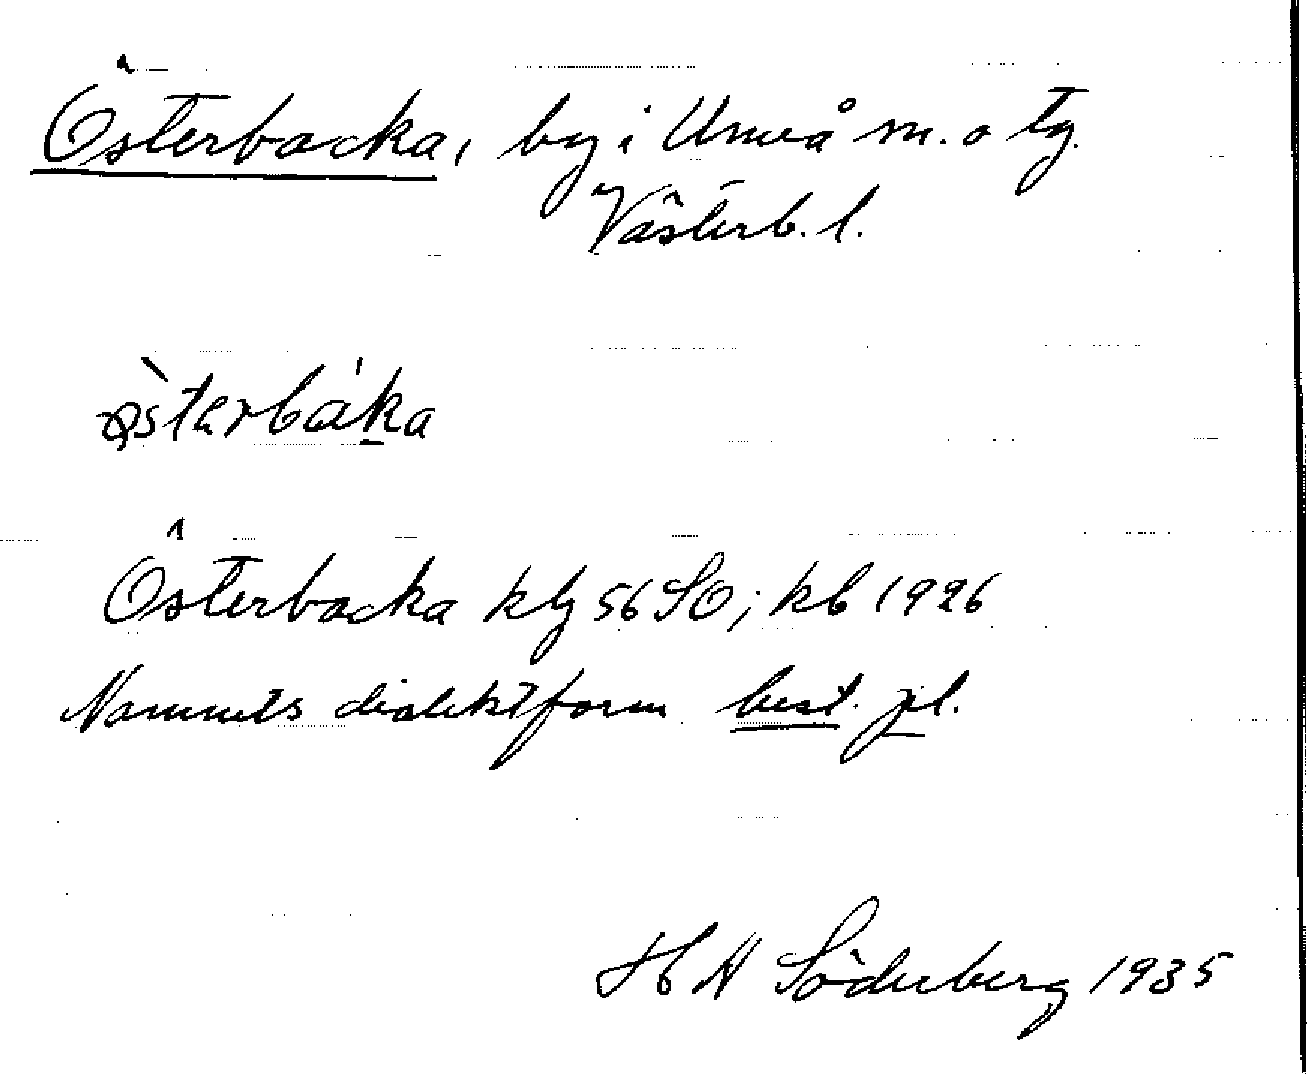 Österbacka, by i Umeå m. o tg.
Västerb. l.
Österbacka kbg 56 SO; kb 1926
Namnets dialektform best. pl.
H A Söderberg 1935